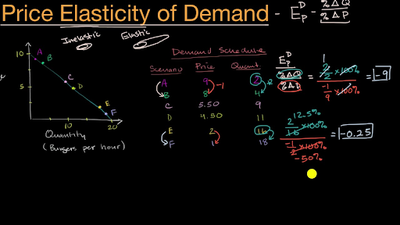 Price Elasticity of Demand - E_P^D - %ΔQ / %ΔP
Inelastic Elastic
10
5
A
B
C
D
E
F
10 20
Quantity
(Burgers per hour)
Demand Schedule
Scenario Price Quant
A 9 2
B 8 4
C 5.50 9
D 4.50 11
E 2 16
F 1 18
-1
+2
E_P^D
%ΔQ
%ΔP
= 2/2 × 100% / -1/9 × 100% = -9
12.5%
2/16 × 100%
-1/2 × 100%
-50%
= -0.25